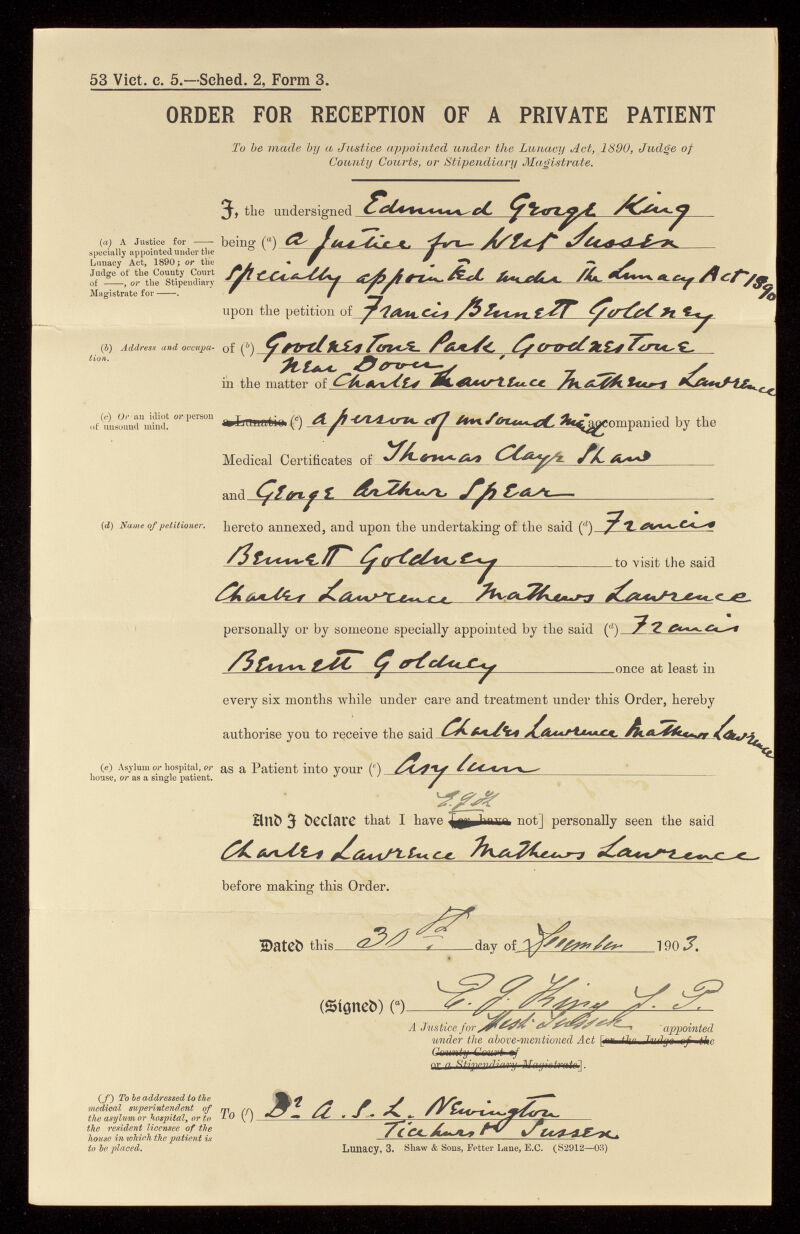 53 Vict. c. 5.—Sched. 2, Form 3.
ORDER FOR RECEPTION OF A PRIVATE PATIENT
To be made by a Justice appointed under the Lunacy Act, 1890, Judge of
County Courts, or Stipendiary Magistrate.
I, the undersigned Edmund George King
(a) A Justice for —
specially appointed under the
Lunacy Act, 1890; or the
Judge of the County Court
of —, or the Stipendiary
Magistrate for —.
being (a) a Justice for West Sussex
specially appointed under the Lunacy Act 1890
upon the petition of Francis Bennett Goldney
(b) Address and occupation.
of (b) Goodnestone Park, Goodnestone
near Dover
in the matter of Charles Lawrence Mathews Lawrence
(c) Or an idiot or person
of unsound mind.
a Lunatic (c) a person of unsound mind accompanied by the
Medical Certificates of Thomas Claye Shaw
and George Arthur Spear
(d) Name of petitioner.
hereto annexed, and upon the undertaking of the said (d) Francis
Bennett Goldney to visit the said
Charles Lawrence Mathews Lawrence
personally or by someone specially appointed by the said (d) Francis
Bennett Goldney once at least in
every six months while under care and treatment under this Order, hereby
authorise you to receive the said Charles Lawrence Mathews Lawrence
(e) Asylum or hospital, or
house, or as a single patient.
as a Patient into your (e) Asylum
E.G.K.
And I declare that I have [or have not] personally seen the said
Charles Lawrence Mathews Lawrence
before making this Order.
Dated this 30th day of December 1903.
(Signed) (a) E. G. King J. P.
A Justice for West Sussex appointed
under the above-mentioned Act [or the Judge of the
County Court of
or a Stipendiary Magistrate].
(f) To be addressed to the
medical superintendent of
the asylum or hospital, or to
the resident licensee of the
house in which the patient is
to be placed.
To (f) Dr. A. S. L. Newington
Ticehurst Sussex
Lunacy, 3. Shaw & Sons, Fetter Lane, E.C. (S2912—03)